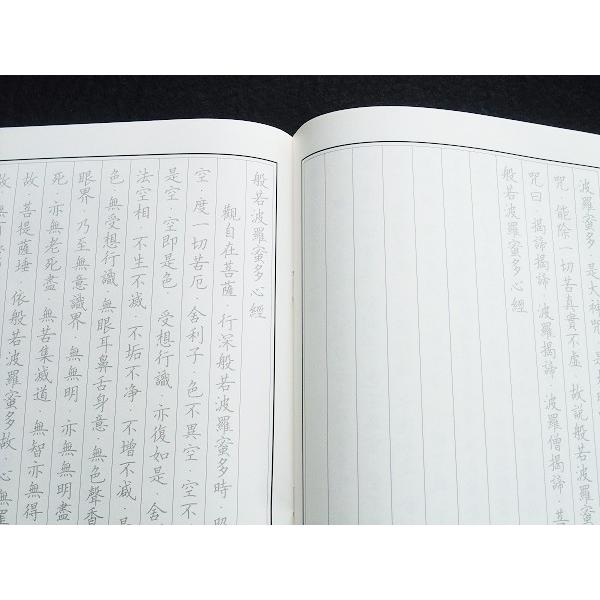 波羅蜜多．是大神咒．是
咒．能除一切苦真實不虛．故說般若波羅蜜多
咒曰．揭諦揭諦．波羅揭諦．波羅僧揭諦．菩
般若波羅蜜多心經
般若波羅蜜多心經
觀自在菩薩．行深般若波羅蜜多時．照
空．度一切苦厄．舍利子．色不異空．空不
是空．空即是色．受想行識．亦復如是．舍
法空相．不生不滅．不垢不净．不增不減．是
色．無受想行識．無眼耳鼻舌身意．無色聲香
眼界．乃至無意識界．無無明．亦無無明盡
死．亦無老死盡．無苦集滅道．無智亦無得
故．菩提薩埵．依般若波羅蜜多故．心無罣
故．無有